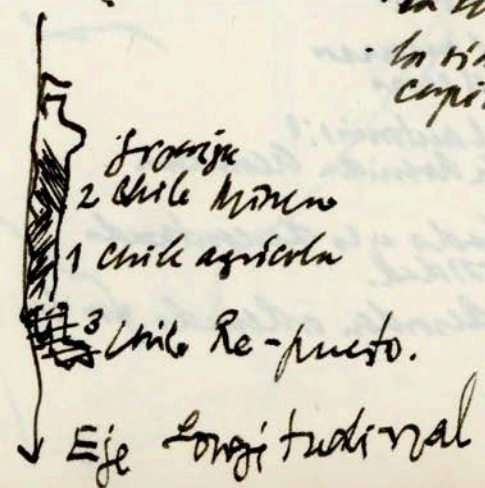 la
la vi
capi
2 Chile Minero
1 Chile agrícola
3 Chile Re-puesto.
Eje Longitudinal